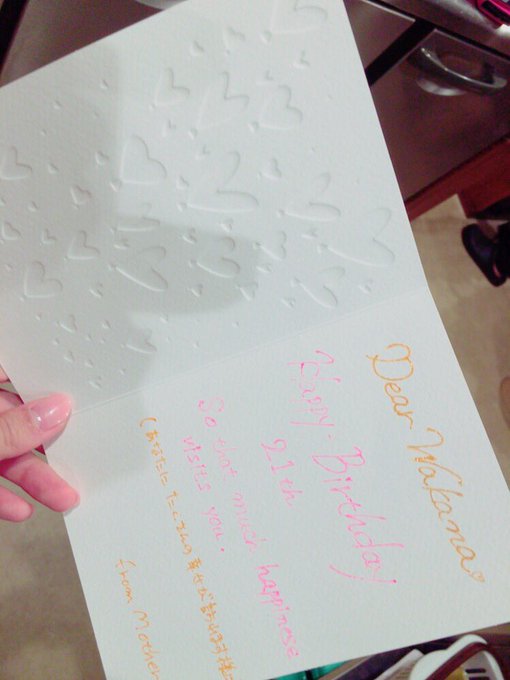 Dear Wakana
Happy-Birthday
21th
So that much happiness
visits you.
(あなたに たくさんの 幸せが訪れます様に
from Mother